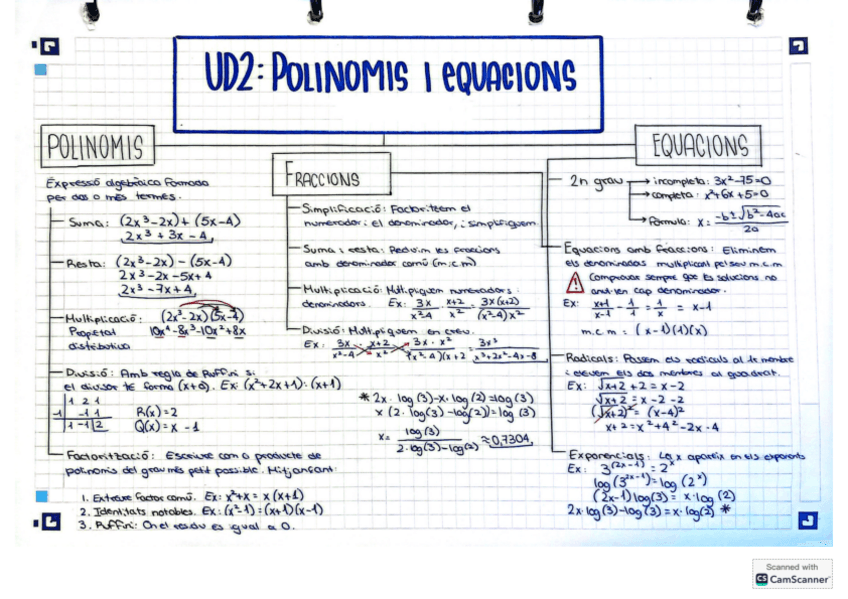 UD2: POLINOMIS I EQUACIONS
POLINOMIS
Expressió algebraica formada
per dos o més termes.
Suma: (2x³-2x) + (5x-4)
2x³ + 3x - 4
Resta: (2x³-2x) - (5x-4)
2x³-2x-5x+4
2x³-7x+4
Multiplicació: (2x³-2x)(5x-4)
Propietat 10x⁴-8x³-10x²+8x
distributiva
Divisió: Amb regla de Ruffini si
el divisor té forma (x+a). Ex: (x²+2x+1):(x+1)
1 2 1
-1 -1 1 R(x)=2
1 -1 2 Q(x)=x-1
Factorització: Escriure com a producte de
polinomis del grau més petit possible. Mitjançant:
1. Extreure factor comú. Ex: x²+x = x(x+1)
2. Identitats notables. Ex: (x²-1)=(x+1)(x-1)
3. Ruffini: On el residu és igual a 0.
FRACCIONS
Simplificació: Factoritzem el
numerador i el denominador, i simplifiquem.
Suma i resta: Reduïm les fraccions
amb denominador comú (m.c.m)
Multiplicació: Multipliquem numeradors i
denominadors. Ex: 3x/x²-4 · x+2/x² = 3x(x+2)/(x²-4)x²
Divisió: Multipliquem en creu.
Ex: 3x/x²-4 x+2/x² 3x·x²/(x²-4)(x+2 = 3x³/x³+2x²-4x-8
* 2x·log(3)-x·log(2)=log(3)
x(2·log(3)-log(2))=log(3)
x= log(3)/2·log(3)-log(2) ≈0,7304
EQUACIONS
2n grau → incompleta: 3x²-75=0
→ completa: x²+6x+5=0
→ Fórmula: x= -b±√b²-4ac/2a
Equacions amb fraccions: Eliminem
els denominadors multiplicant pel seu m.c.m
Comprovar sempre que les solucions no
anul·len cap denominador.
Ex: x+1/x-1 - 1/1 = 1/x = x-1
m.c.m = (x-1)(1)(x)
Radicals: Passem els radicals al 1r membre
i elevem els dos membres al quadrat.
Ex: √x+2 +2=x-2
√x+2 = x-2-2
(√x+2)² = (x-4)²
x+2=x²+4²-2x·4
Exponencials: La x apareix en els exponents
Ex: 3^(2x-1) = 2^x
log(3^(2x-1))=log(2^x)
(2x-1)log(3)= x·log(2)
2x·log(3)-log(3)=x·log(2) *
Scanned with
CS CamScanner